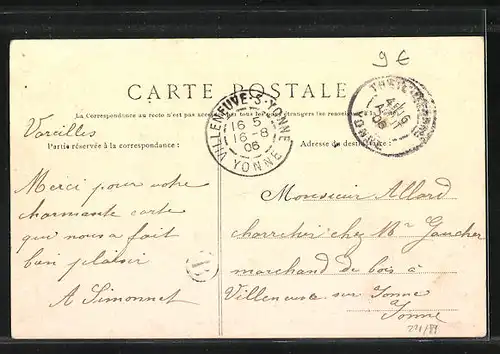 9 €
CARTE POSTALE
La Correspondance au recto n'est pas acceptée par tous les pays étrangers (se renseigner à la Poste)
VILLENEUVE-S-YONNE
16 5
16 -8
06
YONNE
YONNE
Voreilles
Partie réservée à la correspondance :
Adresse du destinataire :
Merci pour votre
charmante carte
qui nous a fait
bien plaisir
A Simonnet
Monsieur Allard
charretier chez Mr Gaucher
marchand de bois à
Villeneuve sur Yonne
Yonne